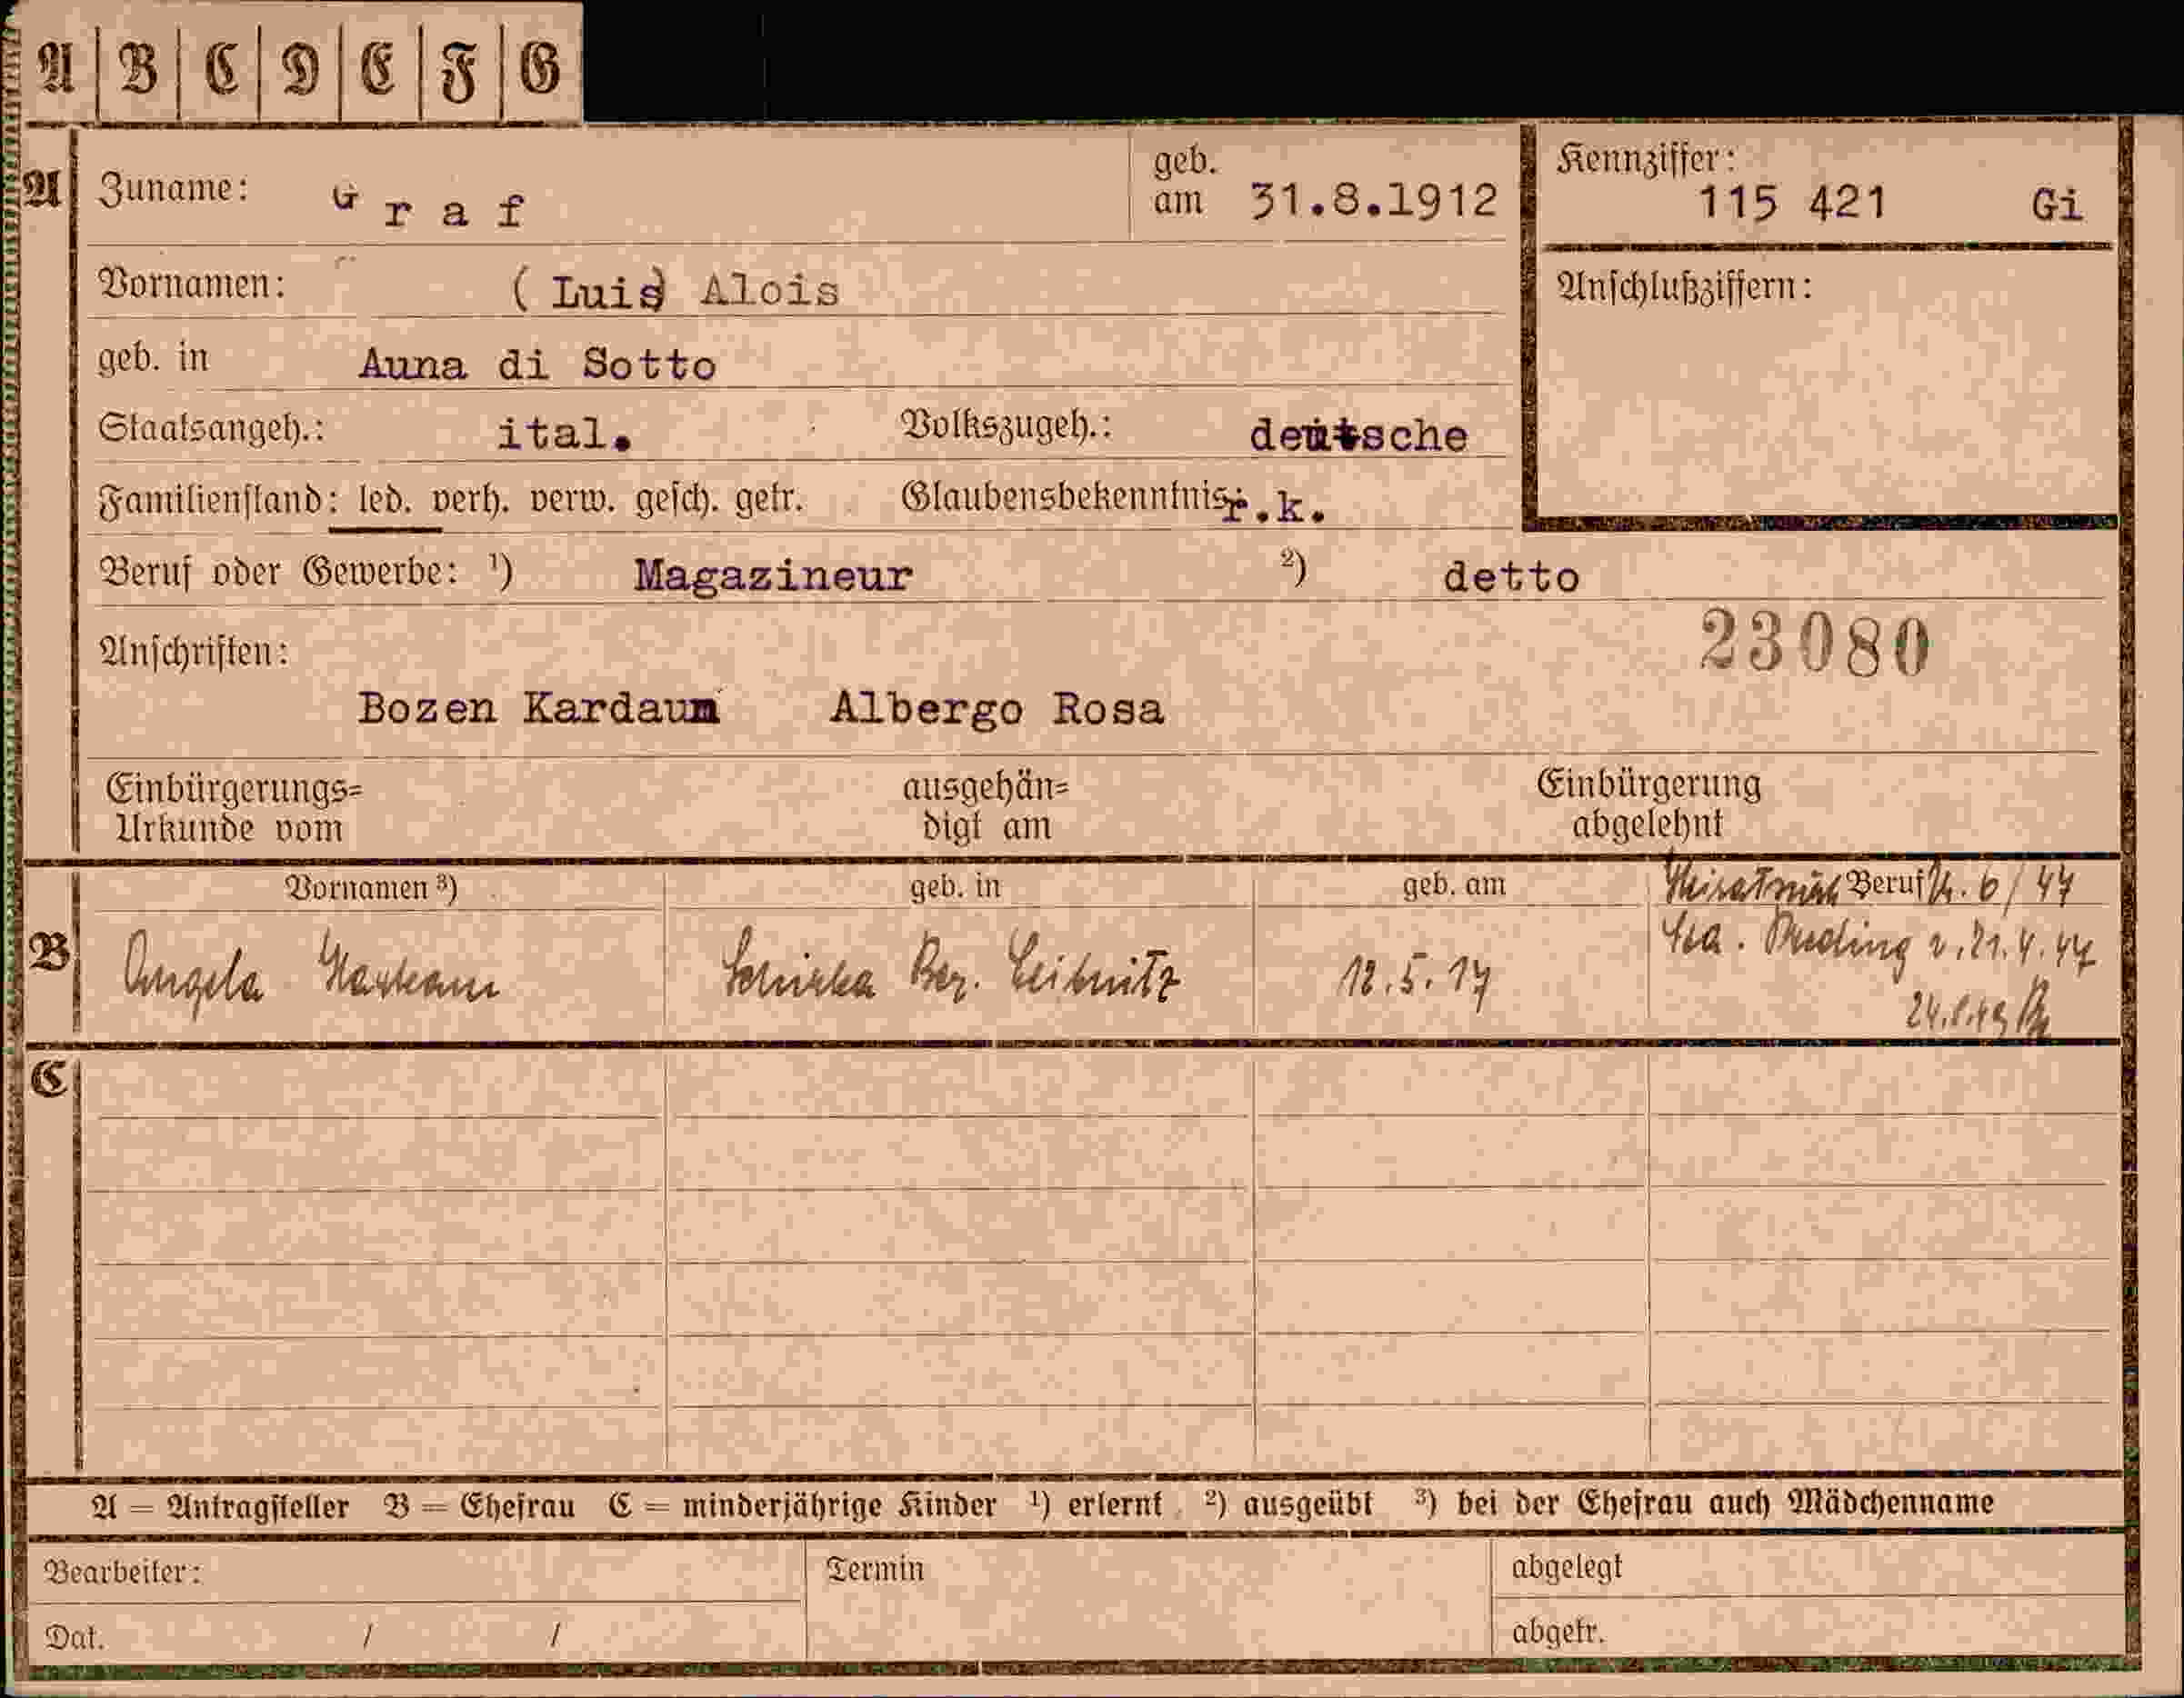 A | B | C | D | E | F | G
A Zuname: G r a f geb. am 31.8.1912 Kennziffer: 115 421 Gi
Vornamen: (Luis) Alois Anschlußziffern:
geb. in Auna di Sotto
Staatsangeh.: ital. Volkszugeh.: deutsche
Familienstand: led. verh. verw. gesch. getr. Glaubensbekenntnis: r.k.
Beruf oder Gewerbe: ¹) Magazineur ²) detto
23080
Anschriften:
Bozen Kardaun Albergo Rosa
Einbürgerungs=
Urkunde vom
ausgehän=
digt am
Einbürgerung
abgelehnt
B Vornamen ³) geb. in geb. am Beruf Nr. 6/47
Angela Bez. Leibnitz 12.5.17 v. 21.4.47
C
A = Antragsteller B = Ehefrau C = minderjährige Kinder ¹) erlernt ²) ausgeübt ³) bei der Ehefrau auch Mädchenname
Bearbeiter: Termin abgelegt
Dat. / / abgetr.